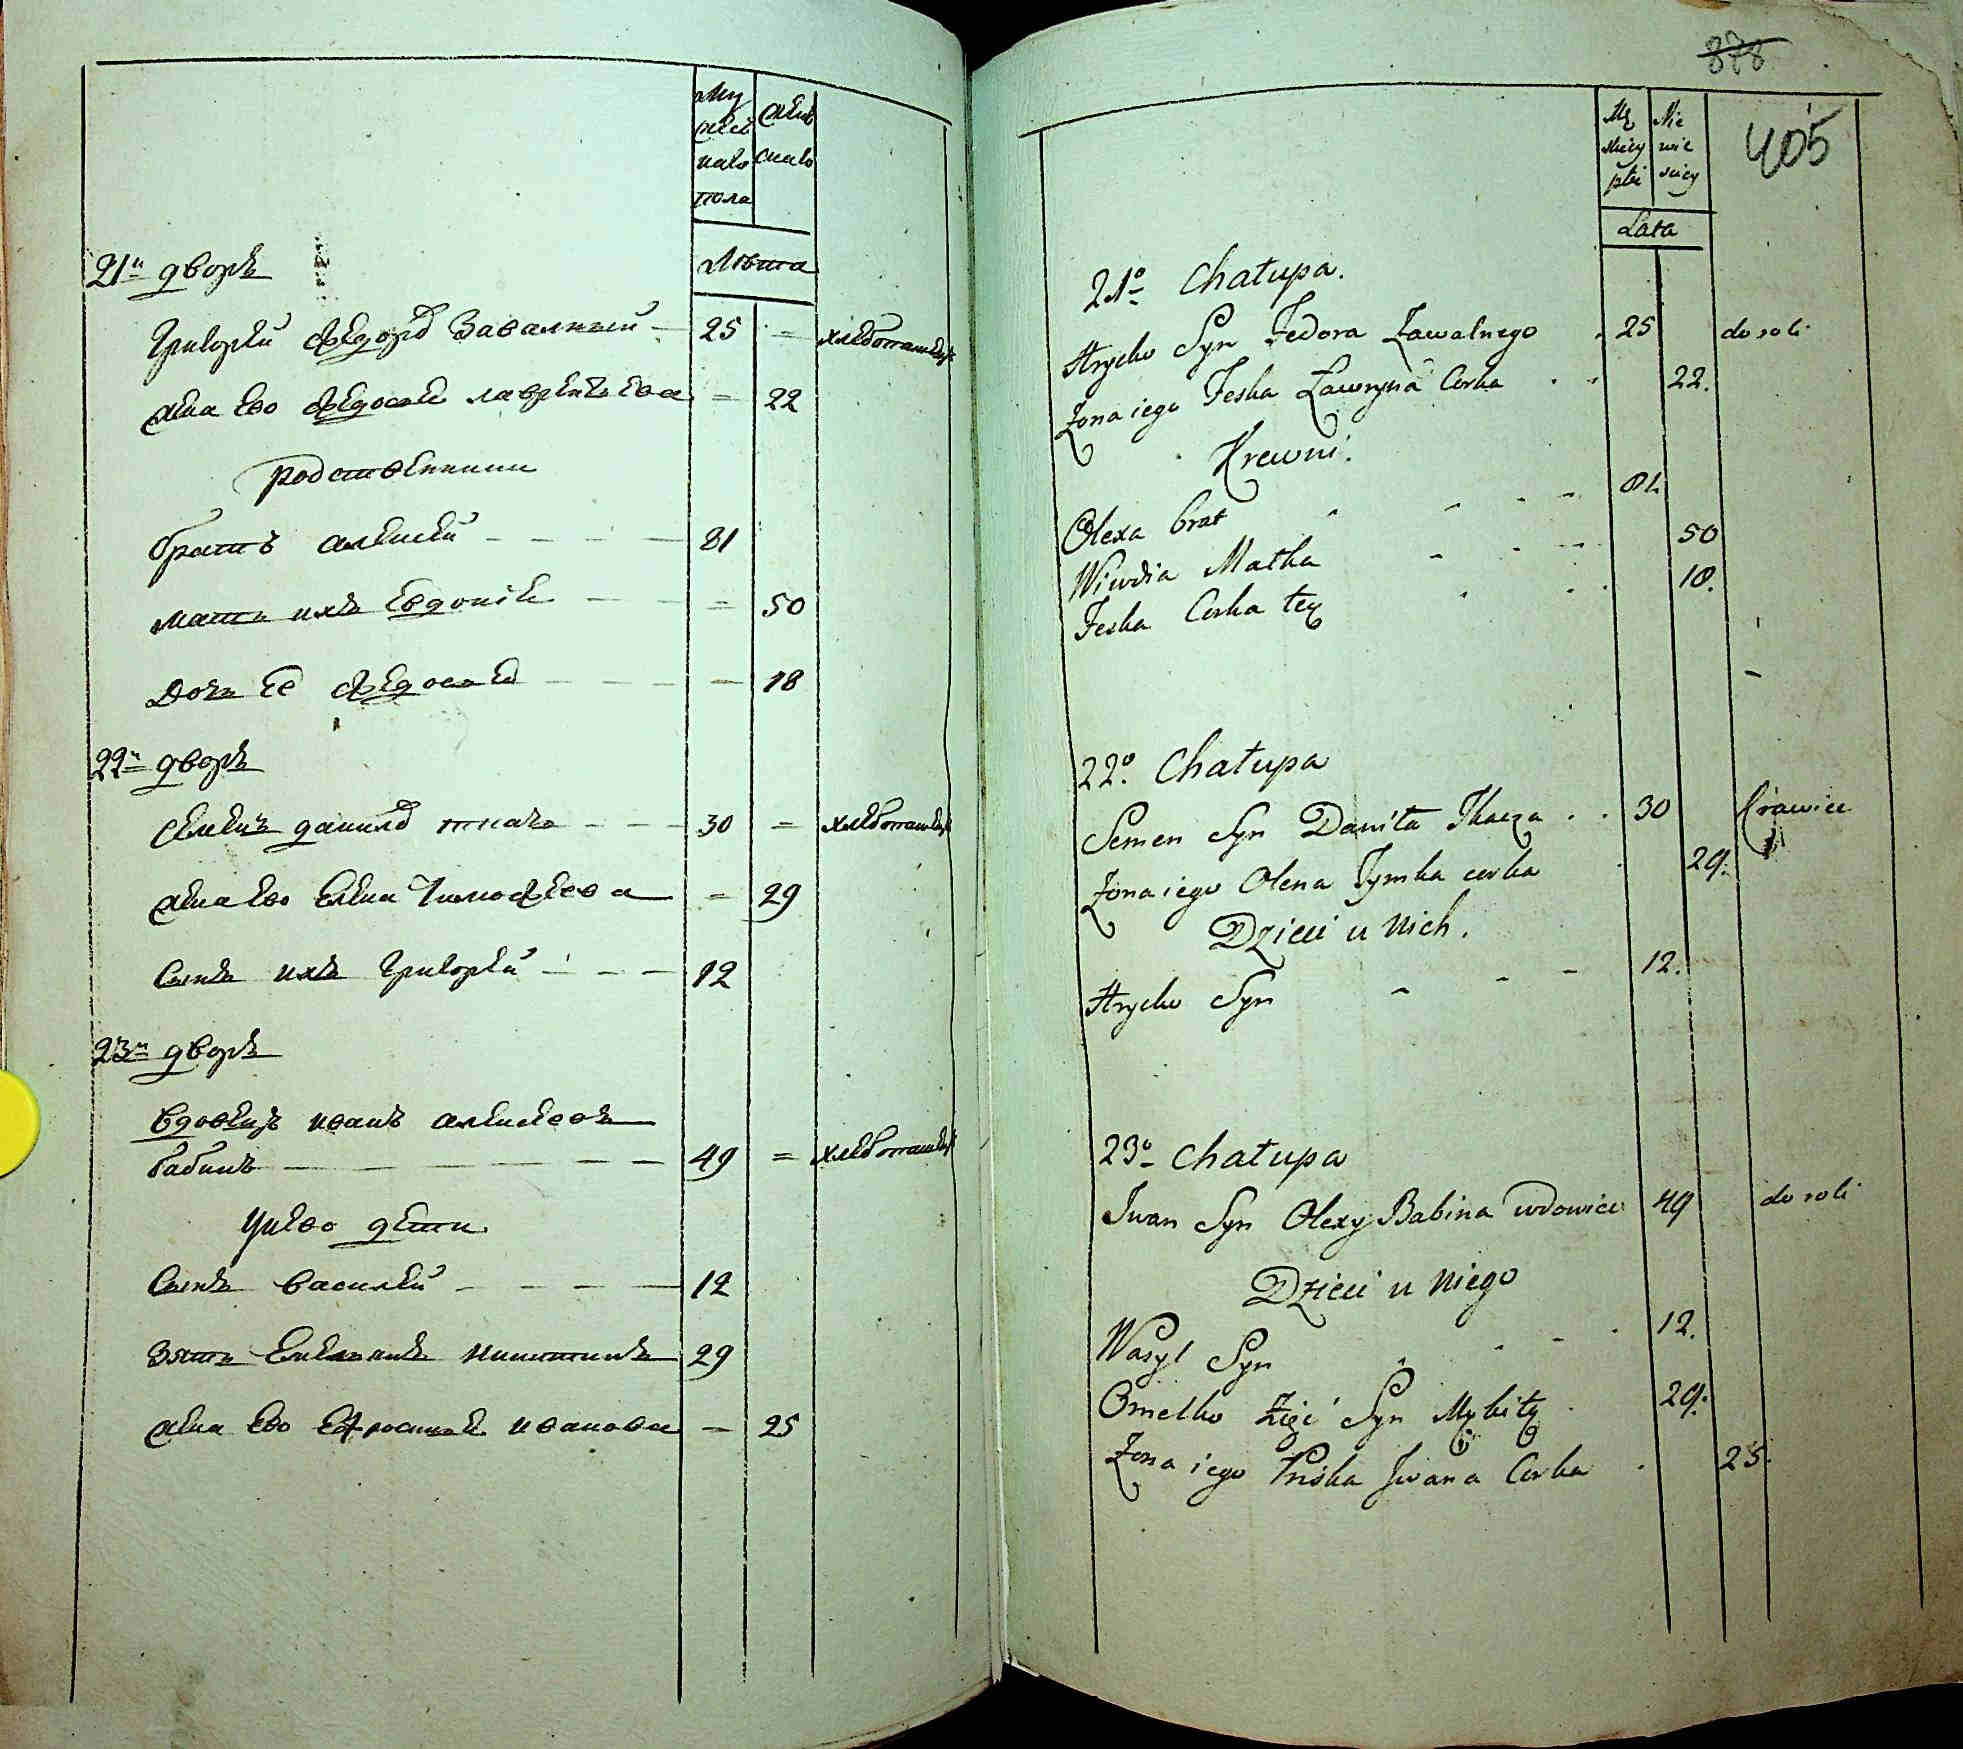 Му
жес
каго
пола
Жен
скаго
Лѣта
21й дворъ
Григорей Федоров Завалный — 25 = хлебопашецъ
жена ево Федосея Лаврентьева = 22
Родственники
братъ алексей — 81
мать ихъ Евдокия — = 50
Дочь ее Федосея — 18
22й дворъ
Семенъ данилов ткачь — 30 = хлебопашецъ
жена ево Елена Тимофеева = 29
Сынъ ихъ Григорей — 12
23й дворъ
вдовецъ иванъ алексеевъ
бабинъ — 49 = хлебопашецъ
У нево дети
Сынъ василей — 12
Зять Емельянъ Никитинъ 29
жена ево Ефросинья иванова — 25
878
405
Mę
skiey
płci
Nie
wie
sciey
Lata
21o Chałupa.
Hryćko Syn Fedora Zawalnego 25 do roli
Zona iego Feska Ławryna Corka 22.
Krewni.
Olexa brat 81.
Wiwdia Matka 50
Feska Corka tey 18.
22o Chałupa
Semen Syn Daniła Tkacza 30 Krawiec
Zona iego Olena Tymka corka 29.
Dzieci u nich.
Hryćko Syn 12.
23o Chałupa
Iwan Syn Olexy Babina wdowiec 49 do roli
Dzieci u niego
Wasyl Syn 12.
Omelko Zięć Syn Mykity 29.
Zona iego Pryśka Iwana Corka 25.